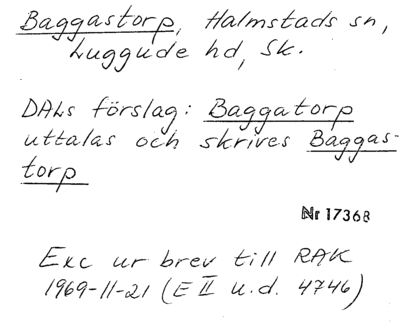 Baggastorp, Halmstads sn,
Luggude hd, Sk.
DALs förslag: Baggatorp
uttalas och skrives Baggas-
torp
Nr 17368
Exc ur brev till RAK
1969-11-21 (E II u.d. 4746)